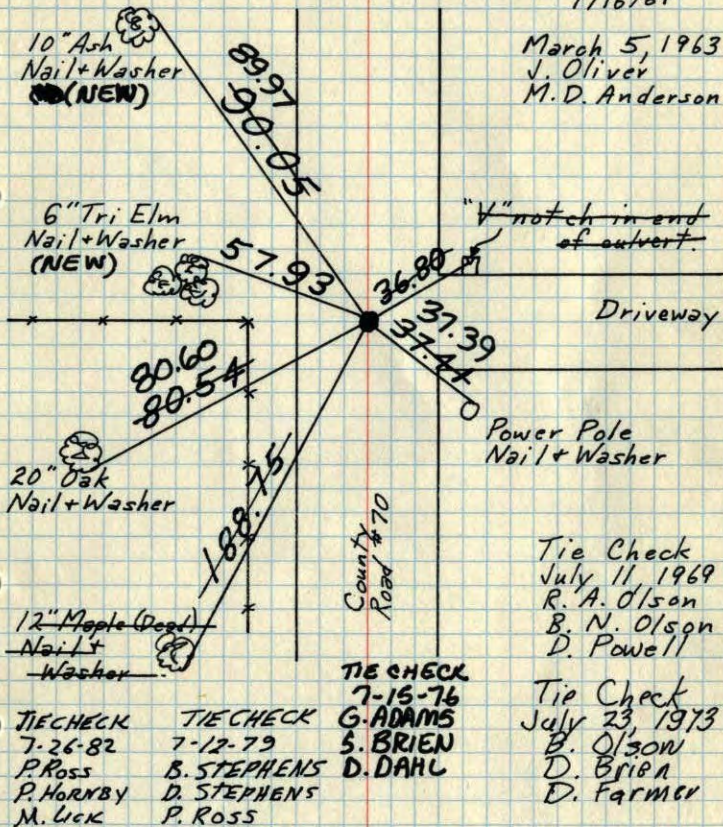 March 5, 1963
J. Oliver
M.D. Anderson
10" Ash
Nail + Washer
(NEW)
89.97
90.05
6" Tri Elm
Nail + Washer
(NEW)
57.93
"V" notch in end
of culvert.
36.80
Driveway
37.39
37.44
80.60
80.54
Power Pole
Nail + Washer
20" Oak
Nail + Washer
188.75
County
Road #70
12" Maple (Dead)
Nail +
Washer
Tie Check
July 11, 1969
R. A. Olson
B. N. Olson
D. Powell
Tie Check
July 23, 1973
B. Olson
D. Brien
D. Farmer
TIE CHECK
7-15-76
G. ADAMS
S. BRIEN
D. DAHL
TIE CHECK
7-12-79
B. STEPHENS
D. STEPHENS
P. ROSS
TIE CHECK
7-26-82
P. ROSS
P. HORNBY
M. LICK